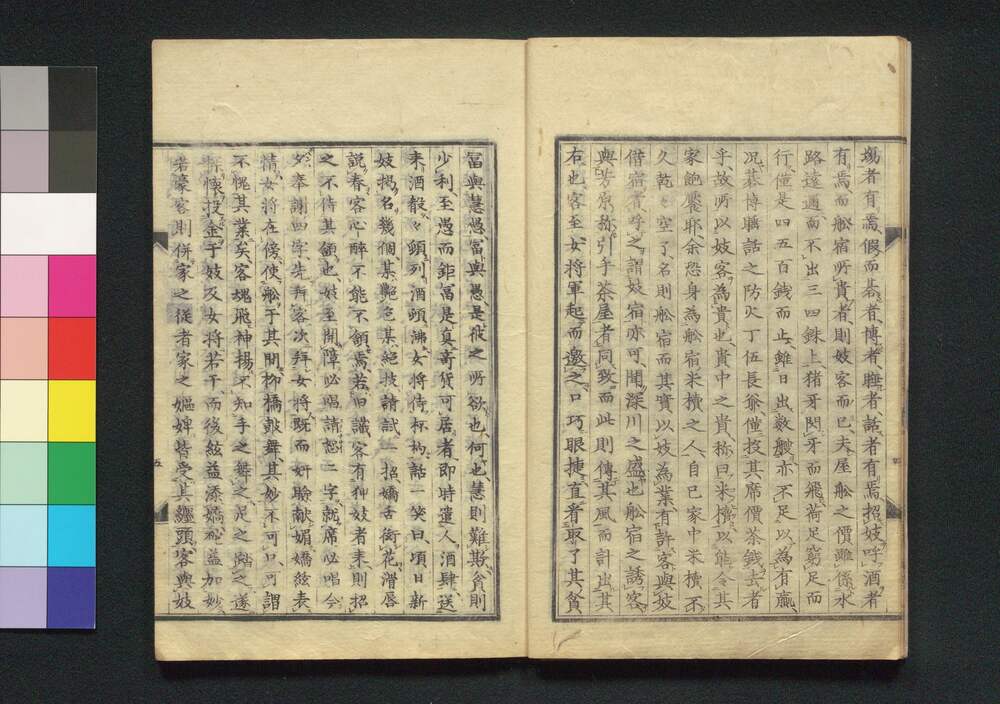 塲者有焉、假而碁者、博者、睡者、話者有焉、招妓呼酒者
有焉、而舩宿所貴者則妓客而已、夫屋舩之價雖係水
路遠邇、而不出三四銖、上猪牙閃牙而飛、荷足窮足而
行、僅是四五百錢而止、雖日出数艘、亦不足以為有贏、
况碁博睡話之防火丁伍長爺僅投其席價茶錢去者
乎、故所以妓客為貴也、貴中之貴称曰米櫝、以能令其
家飽饜耶、余恐身為舩宿米櫝之人、自己家中米櫝不
久乾々空了、名則舩宿而其實以妓為業、有許客與妓
借宿者、呼之謂妓宿亦可、聞深川之盛也、舩宿之誘客
與芳原称引手茶屋者同致、而此則傳其風而計出其
右也、客至女将軍起而邀之、口巧眼捷、直看取了其貧
冨與慧愚、冨與愚是我之所欲也、何也、慧則難欺、貧則
少利、至愚而鉅冨是真奇貨可居者、即時遣人酒肆送
来酒殽、々顫列、酒頭沸、女将侍杯杓、話一笑曰、頃日新
妓掲名幾個、某艶色、某絶技、請試一招、嬌舌銜花、滑唇
説春、客心醉不能不頷焉、若旧識客有狎妓者来、則招
之不待其頷也、妓至開障必唱請恕二字、就席必唱今
夕奉謝四字、先拜客次拜女将、既而妍臉献媚、嬌絃表
情、女将在傍、使舩于其間、抑橋皷舞、其妙不可口、可謂
不愧其業矣、客塊飛神揚、不知手之舞之、足之蹈之、遂
解懷投金于妓及女将若干、而後絃益添嬌、砣益加妙
若豪客則併家之従者家之嫗婢皆受其纒頭、客與妓
五